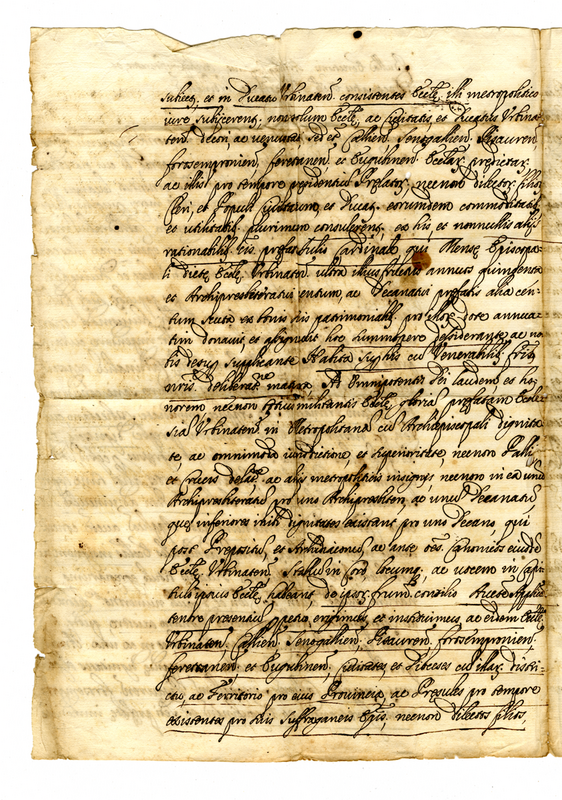 subiect. et in Ducatu Urbinaten. consistentes Eccle. illi metropolitico
iure subijcerent., non solum Eccle., ac Civitatis, et Ducatus Urbina
ten. decori ac venustati sed et Callien. Senogallien. Pisauren.
forosempronien. feretranen. et Eugubinen. Ecclar. predictar.
ac illis pro tempore presidentium Prelator. necnon dilector. filior.
Cleri, et Populi Civitatum, et Ducat. eorumdem commoditati,
et utilitati plurimum consuleret. ex his, et nonnullis alijs
rationabilib. eis. prefat. Iulius Cardinalis qui Mense Episcopa
li dicte Eccle. Urbinaten. ultra illius fructus annuos quingenta
et Archipresbiteratui centum, ac Decanatui prefatis alia cen-
tum scuta ex bonis suis patrimonialib. pro dote annua
tim donavit, et assignavit hoc summopere desiderante, ac no
bis desup. supplicante Habita sup. his cu. Venerabilib. frib.
nris. deliberat.ne matura Ad Omnipotentis Dei laudem et ho
norem, necnon militantis Eccle. gloria. prefatam Eccle
sia. Urbinaten. in Metropolitana. cu. Archiepiscopali dignita
te, ac omnimoda iurisdictione, et superioritate, necnon Pallij
et Crucis delat.ne ac alijs metropoliticis insignijs necnon in ea unu.
Archipresbiteratu. pro uno Archipresbitero, ac unu. Decanatu.
que inferiores inibi dignitates existant pro uno Decano qui
post Prepositu. et Archidiaconu. ac ante oes. Canonicos eiusde.
Eccle. Urbinaten. Stallu. in Coro locumq., ac vocem in Capi
tulo ipsius Eccle. habeant, de ipsor. frum. consilio Aucte. Applica
tenore presentiu. perpetuo erigimus, et instituimus, ac eidem Eccle.
Urbinaten. Callien. Senogallien., Pisauren. forosempronien.
feretranen. et Eugubinen. Civitates, et Dioceses cu. illar. distri-
ctu, ac Territorio pro eius Provincia, ac Presules pro tempore
existentes pro suis Suffraganeis Epis., necnon dilectos filios,